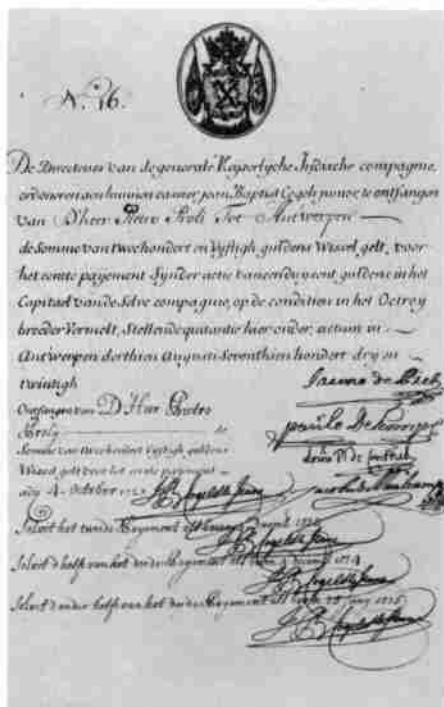 N. 16.
De Directeuren van de generale Keyserlycke Indische compagnie,
ordonneren aen hunnen casier Jean Baptist Cogels junior te ontfangen
van D'heer Pietro Proli tot Antwerpen
de Somme van tweehondert en Vyftigh guldens Wissel gelt, voor
het eerste payement Synder actie van een duysent guldens in het
Capitael van de Selve compagnie, op de conditien in het Octroy
breeder Vermelt, Stellende quitantie hier onder, actum in
Antwerpen derthien Augusti Seventhien hondert dry en
twintigh
Ontfangen van D'Heer Pietro
Proly de
Somme van tweehondert Vyftigh guldens
Wissel gelt voor het eerste payement
4 October
JB Cogels de Jonge
Paulo De
het tweede Payement
JB Cogels de Jonge
d'helft van het derde Payement
JB Cogels de Jonge
d'ander helft van het derde Payement
JB Cogels de Jonge